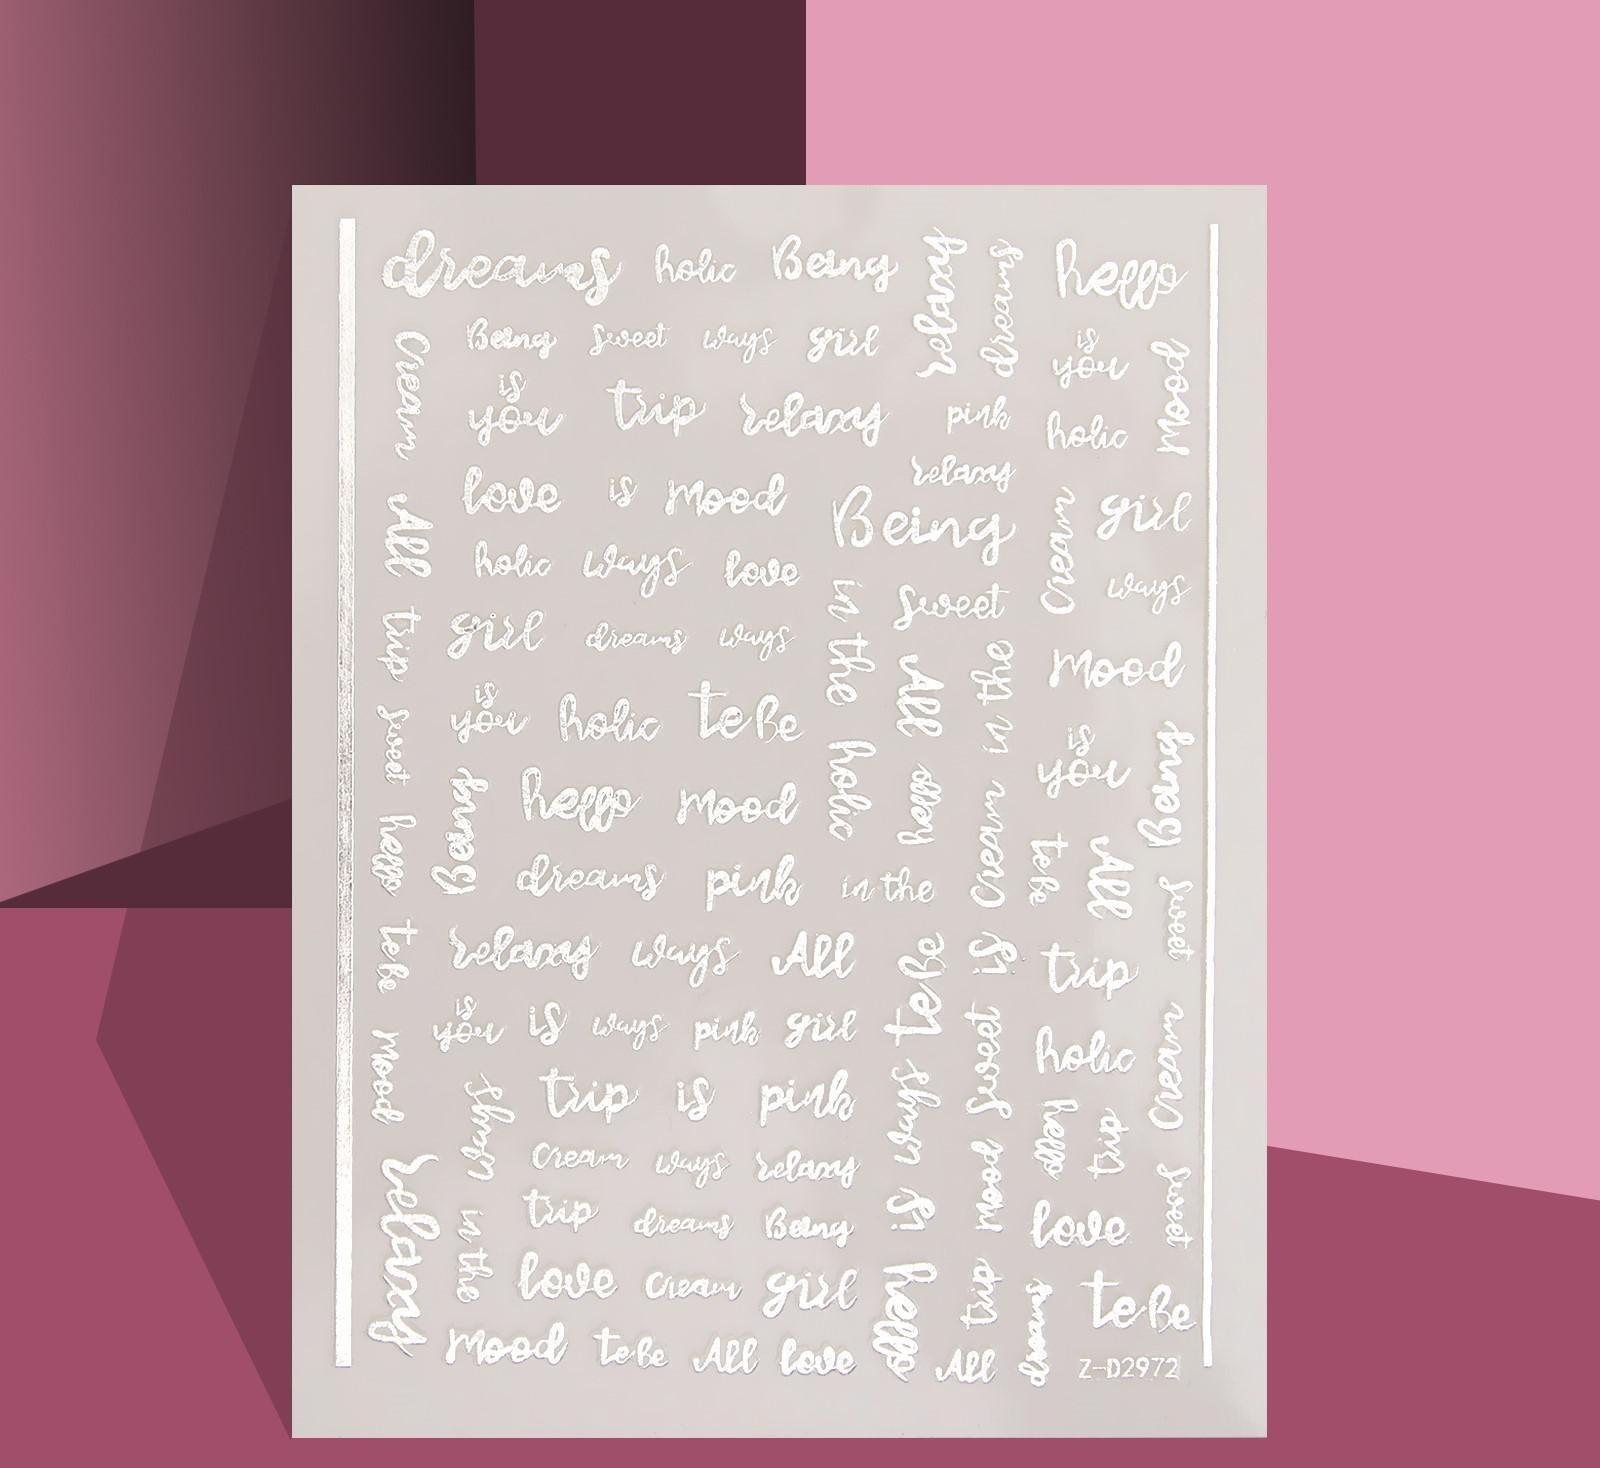 dreams holic Being relaxy dreams hello
Cream Being sweet ways girl is Mood
you is trip relaxy pink you holic
relaxy
All love is Mood Being Cream girl
holic ways love in the sweet ways
trip girl dreams ways All in the Mood
sweet is
you holic te Be holic hello Cream is
you Being
hello Being hello Mood te Be All
dreams pink in the sweet
te Be relaxy ways All te Be is trip
Mood is
you is ways pink girl ways sweet holic Cream
ways trip is pink is Mood hello trip
relaxy Cream ways relaxy sweet
in the trip dreams Being love
love Cream girl hello trip dreams te Be
Mood te Be All love All Z-D2972